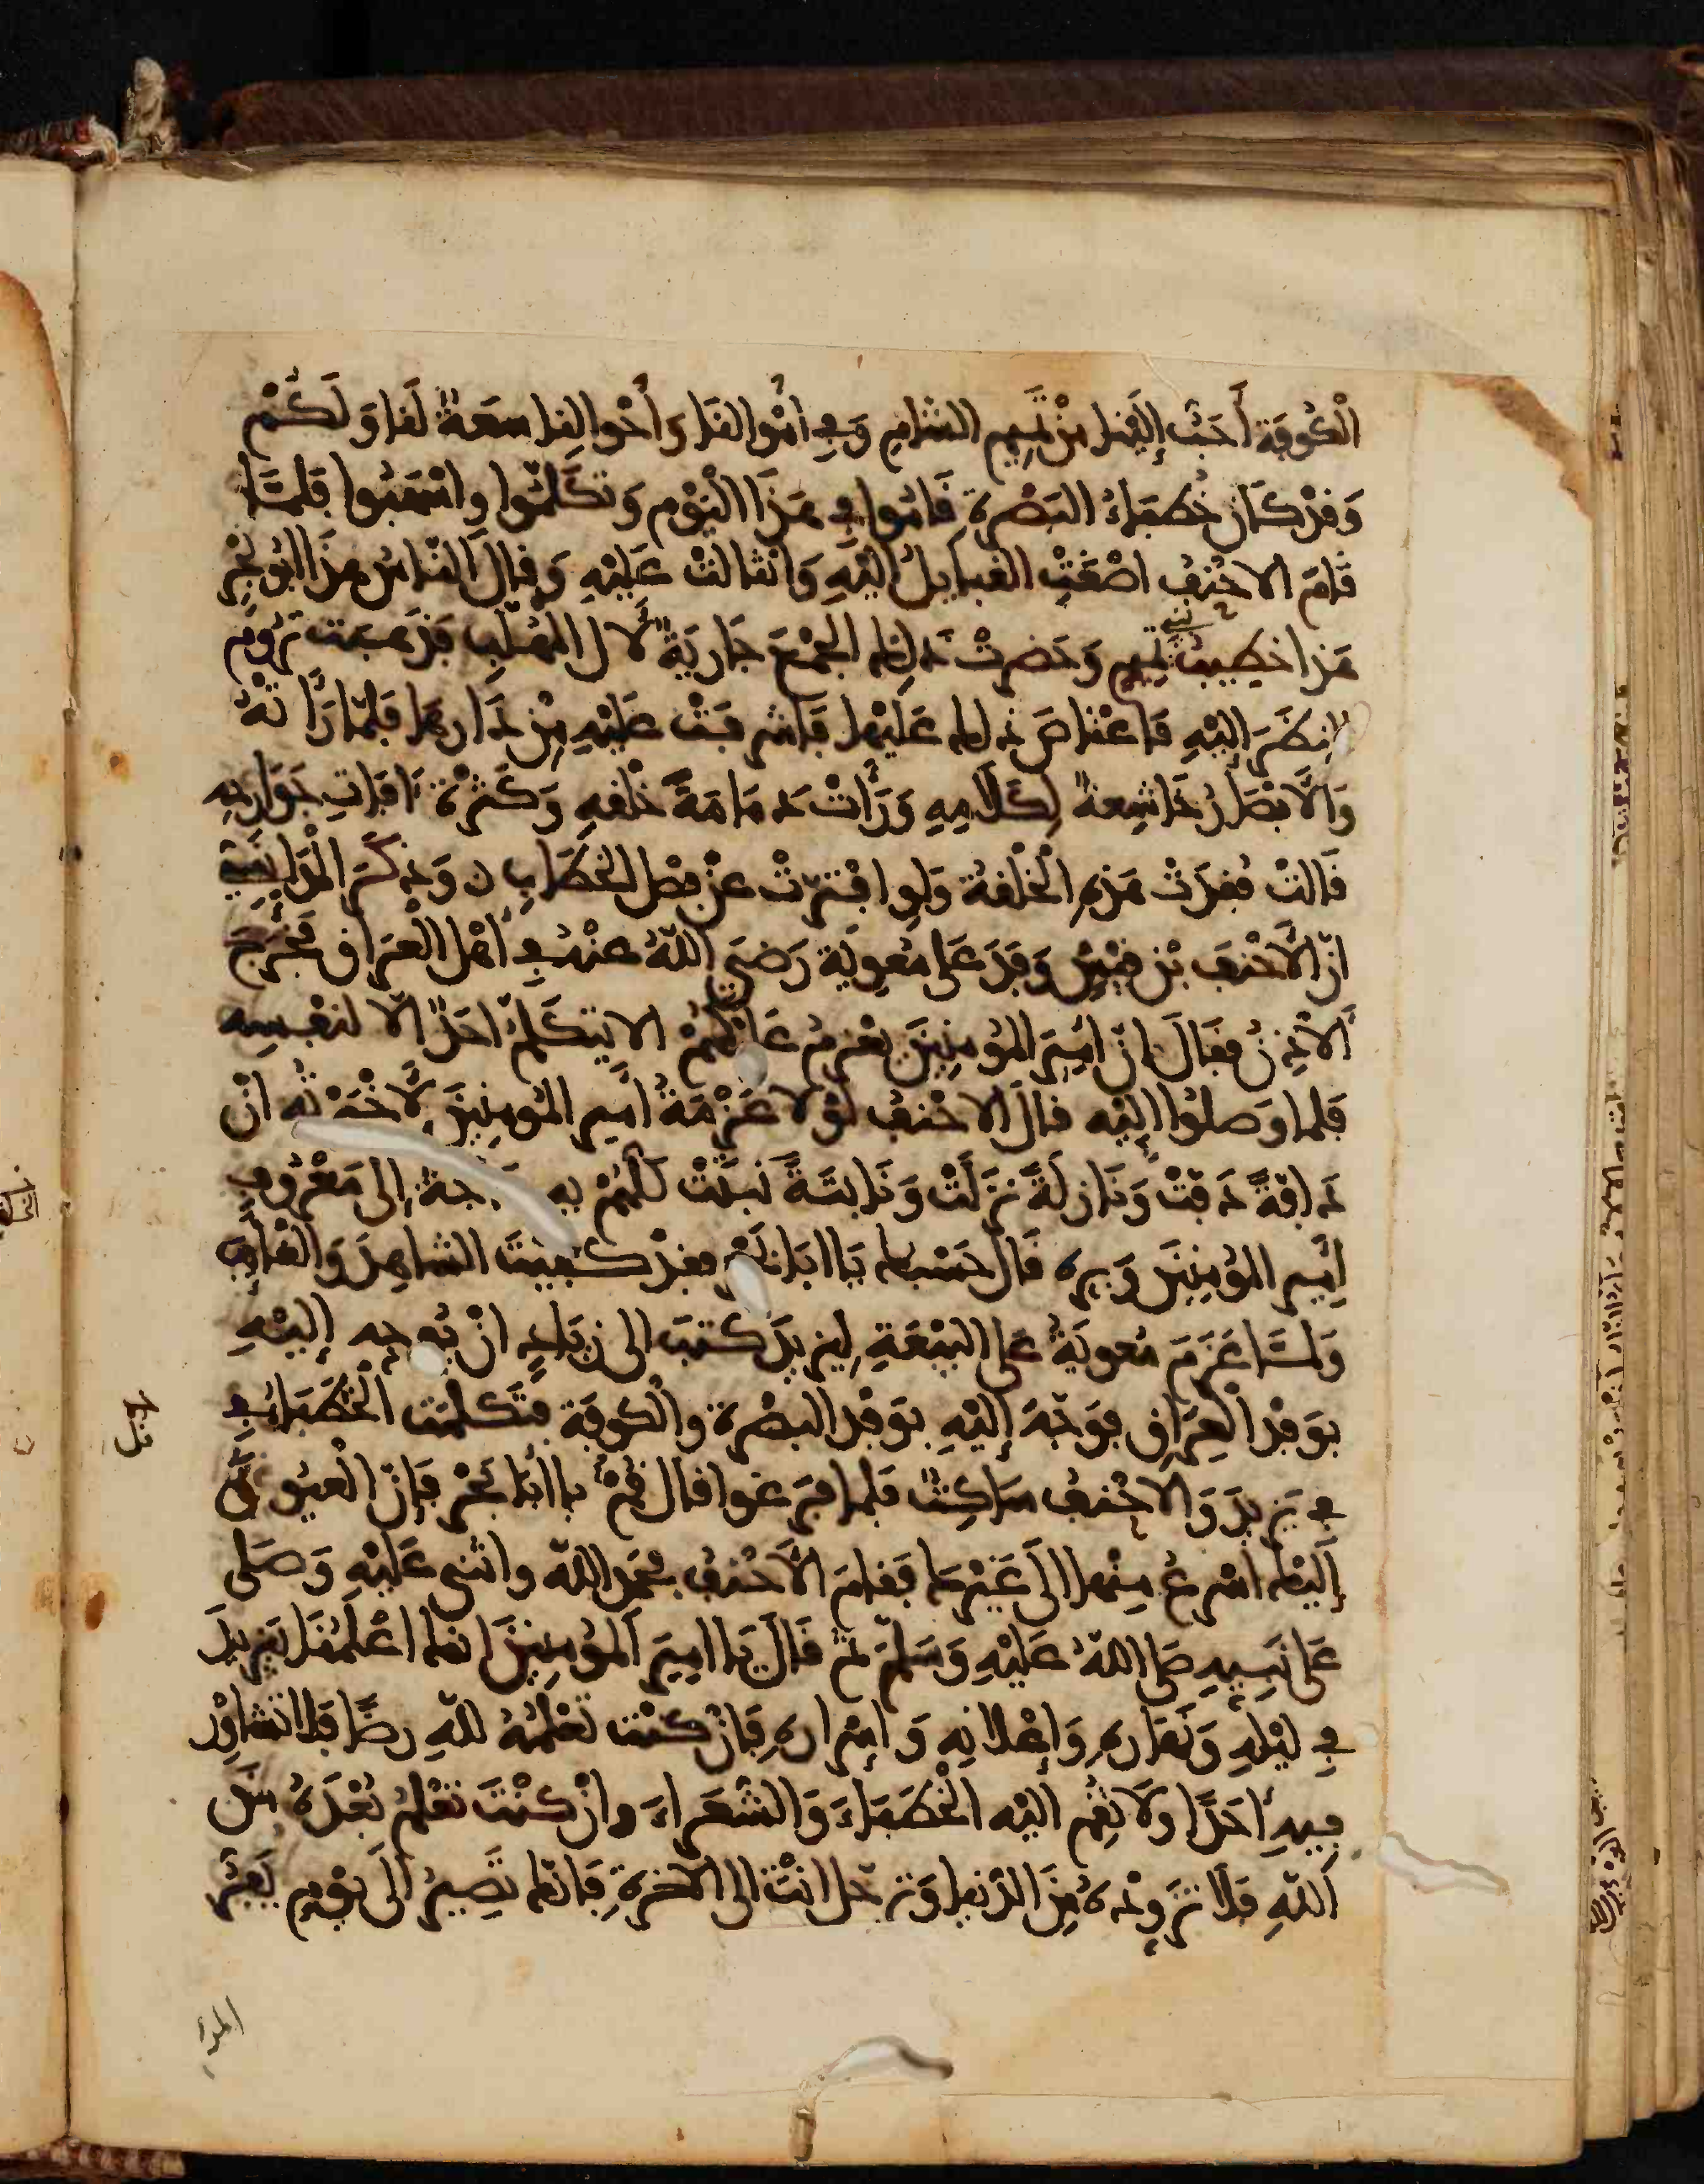 الْكُوفَة أَحَبُّ إِلَيْنا مِنْ تميم الشامِ وَفِي امْوالنَا وَأَحْوالِنا سَعَةٌ لَنا وَلَكُمْ
وَقدْ كَان خُطَبَاءُ البَصْرة قَامُوا في هَذَا اليَوْمِ وَتكَلَّمُوا واسْهَبُوا فَلمَّا
قَامَ الاحْنفُ اصْغَتِ القبايلُ اليْهِ وَانثالتْ عَلَيْهِ وَقالَ النّاسُ هذَا ابُو بَحْرٍ
هَذا خطِيبُ تميم وَحَضرتْ ذَلك الجَمْعَ جَاريَةٌ لآل المهلّب فذهبت تَرُومُ
النظَرَ إليْهِ فَاعْتاصَ ذلك عَلَيْها فَاشرفَتْ عَليْهِ مِنْ دَارهَا فلمّا رَأتْهُ
وَالأَبْصَارُ خَاشِعةٌ لِكَلامِهِ وَرَأتْ دَمَامَةَ خلْقهِ وَكَثرْة آفَاتِ جَوَارحه
قَالتْ فُقِدَتْ هَذهِ الْخلْقةُ وَلو افْترّتْ عنْ فصْل الخطَابِ ن وَذكَرَ الْمَدَايني
انّ الأَحْنفَ بْن قيْسٍ وَفدَ عَلى مُعوِيَة رَضيَ اللهُ عنهُ في أهْل الْعرَاق فَخَرَجَ
الآذِنُ فقَالَ انّ امِيرَ المُؤمِنِينَ يعْزمُ عَليْكُمْ الا يَتكلّمَ احَدٌ الا لنفْسِه
فلما وَصلُوا إليْه قالَ الاحْنفُ لوْلا عَزْمَةُ أمير المُومِنِينَ لأَخْبَرْتُه انْ
دَافّةً دَفّتْ وَنَازلَةً نزَلَتْ وَنَابتَةً نَبتَتْ كلّهُمْ به حَاجة إلى مَعْرُوفِ
امِير المُؤمِنِينَ وَبِره قَالَ حَسْبك يَا ابَا بَحْرٍ فقدْ كفيتَ الشاهِدَ وَالغائِبَ
وَلمَّا عَزَمَ مُعويَةُ عَلى البيْعَةِ لِيزيدَ كتبَ الى زيَادٍ انْ يُوجه إليْهِ
بوَفْدِ الْعرَاقِ فوَجّهَ إليْهِ بوَفْدِ البصْرة وَالكوفَة فتَكلمت الْخُطَبَاءُ في
في يَزيدَ وَالاحْنفُ سَاكتٌ فلما فرَغوا قالَ قُمْ يا ابَا بَحْرٍ فإنّ الْعيُونَ
إليْكَ اسْرعُ مِنْها الى غَيْركَ فقامَ الأَحْنفُ فحَمِدَ الله واثنى عَليْهِ وَصَلى
عَلى نَبِيهِ صَلى اللهُ عَليْهِ وَسَلّمَ ثمّ قَالَ يَا امِيرَ المُؤمِنِينَ انك اعْلَمُنَا بيَزيدَ
في ليْلِهِ وَنَهَارهِ وَإعْلانِه وَإسْرارهِ فَإنْ كنْت تعْلمُهُ للهِ رِضًا فلا تشاوِرْ
فيهِ احَدًا ولا تُقِم اليْه الْخُطَبَاءَ وَالشعَرَاءَ وانْ كنْتَ تعْلمُ بُعْدَهُ منَ
اللهِ فلا تُزَوِّدْهُ مِنَ الدّنيا وَترحلُ انْتَ الى الآخرةِ فَانّك تَصِيرُ الَى يوْمِ يَفرُّ
المرءُ